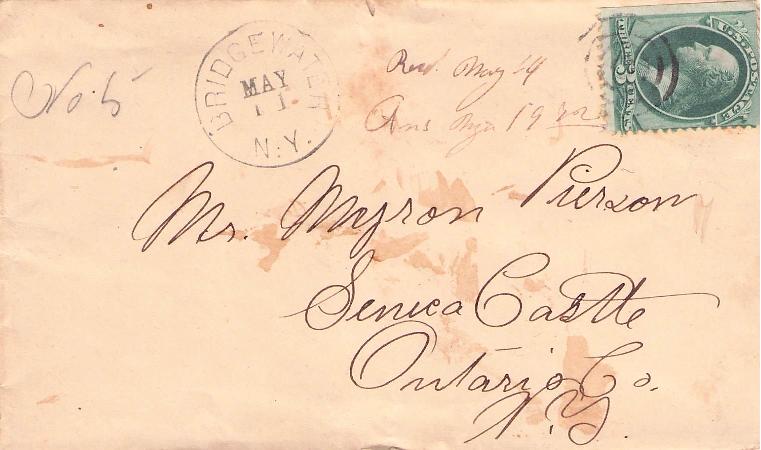 No. 5
BRIDGEWATER
MAY
11
N.Y.
Recd. May 14
Ans May 19
U.S. POSTAGE
Mr. Myron Pierson
Seneca Castle
Ontario Co.
N.Y.